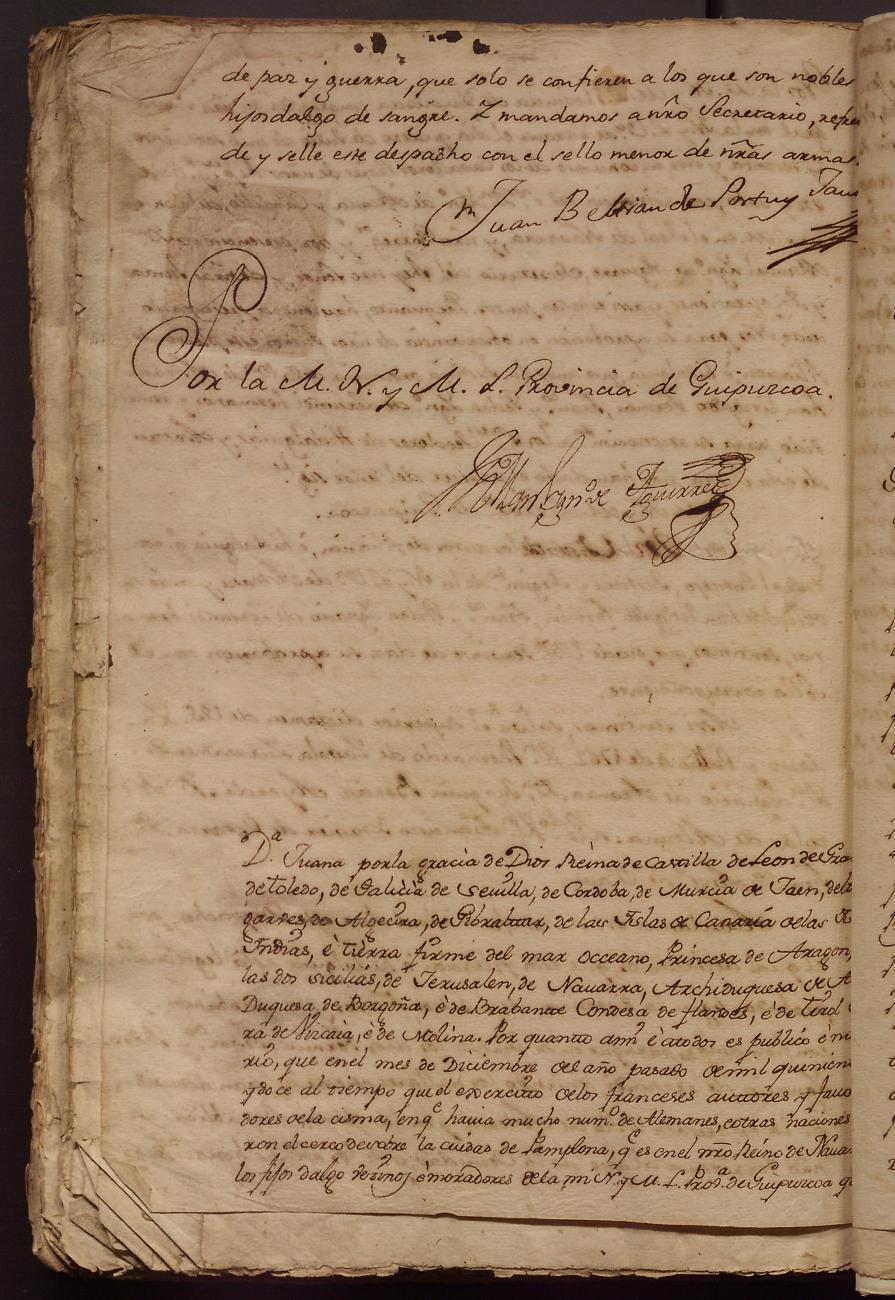 de paz y guerra, que solo se confieren a los que son nobles
hijosdalgo de sangre. Y mandamos a nr̃o Secretario, refren
de y selle este despacho con el sello menor de nr̃as armas.
Juan Beltran de Portu y
Por la M. N. y M. L. Provincia de Guipuzcoa.
de Aguirre
D.ª Juana por la gracia de Dios Reina de Castilla de Leon de Gra
de toledo, de Galicia de Sevilla, de Cordoba, de Murcia de Jaen, de los
garves, de Algecira, de Gibraltar, de las Islas de Canaria de las
Indias, è tierra firme del mar occeano, Princesa de Aragon,
las dos sicilias, de Jerusalen, de Navarra, Archiduquesa de A
Duquesa de Borgoña, è de Brabante Condesa de flandes, è de tirol
ra de Vizcaia, è de Molina. Por quanto a mi è a todos es publico è no
rio, que en el mes de Diciembre del año pasado de mil quinien
y doce al tiempo que el exercito de los franceses auttores y fauo
dores de la cisma, en q.e havia mucho num.o de Alemanes, e otras naciones
ron el cerco sobre la ciudad de Pamplona, q.e es en el nr̃o Reino de Nava
los fijos dalgo vezinos è moradores de la mi N. y M. L. Prov.a de Guipuzcoa q